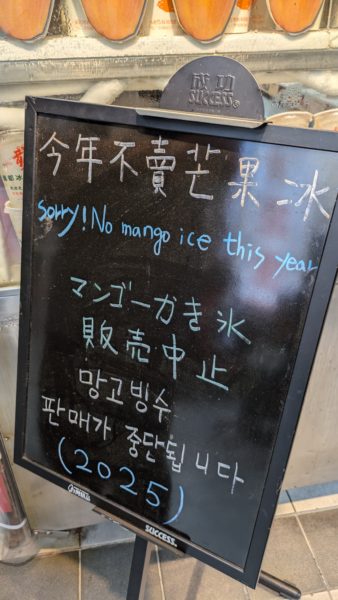 成功
SUCCESS®
今年不賣芒果冰
sorry! No mango ice this year
マンゴーかき氷
販売中止
망고빙수
판매가 중단됩니다
(2025)
SUCCESS®